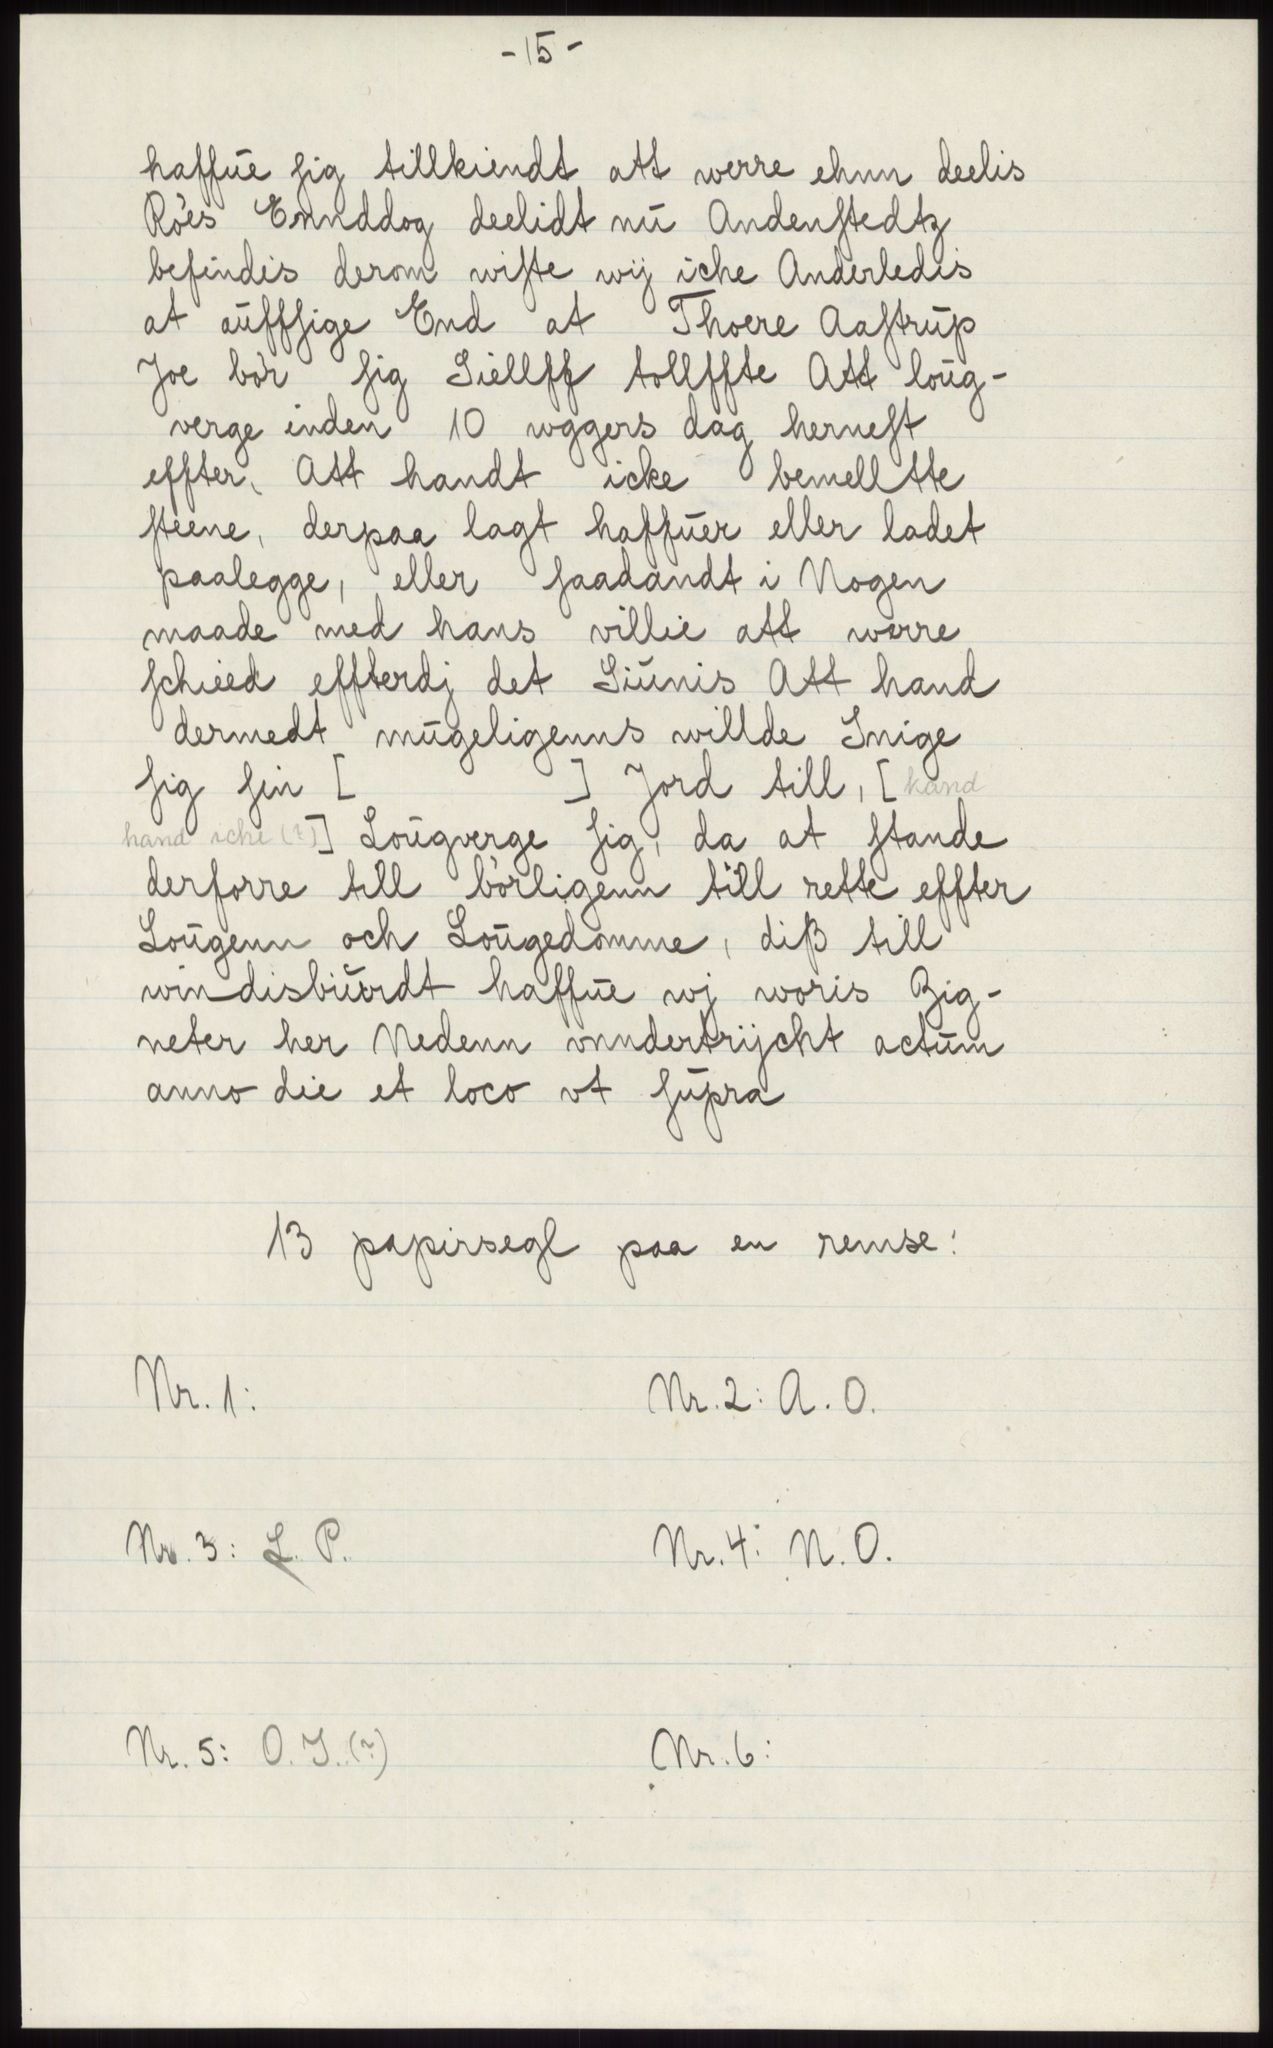 -15-
haffūe sig tillkiendt att werre ehnn deelis
Röes Ennddog deelidt nū Andenstedtz
befindis derom wiste wij iche Anderledis
at aūffsige End at Thoere Aastrūp
Joe bör sig Siellff tollffte Att loūg-
verge inden 10 wggers dag hernest
effter, Att handt icke bemelltte
steene, derpaa lagt haffūer eller ladet
paalegge, eller saadandt i Nogen
maade med hans villie att werre
schieed effterdj det Siūnis Att hand
dermedt mūgeligenns willde Snige
sig sin [ ] Jord till, [kand
hand iche (?)] Loūgverge sig, da at stande
derforre till börligenn till rette effter
Loūgenn och Loūgedomme, diß till
windisbiūrdt haffūe wj woris Zig-
neter her Nedenn vnndertrijcht actūm
anno die et loco vt sūpra
13 papirsegl paa en remse:
Nr. 1: Nr. 2: A. O.
Nr. 3: L. P. Nr. 4: N. O.
Nr. 5: O. J. (?) Nr. 6: